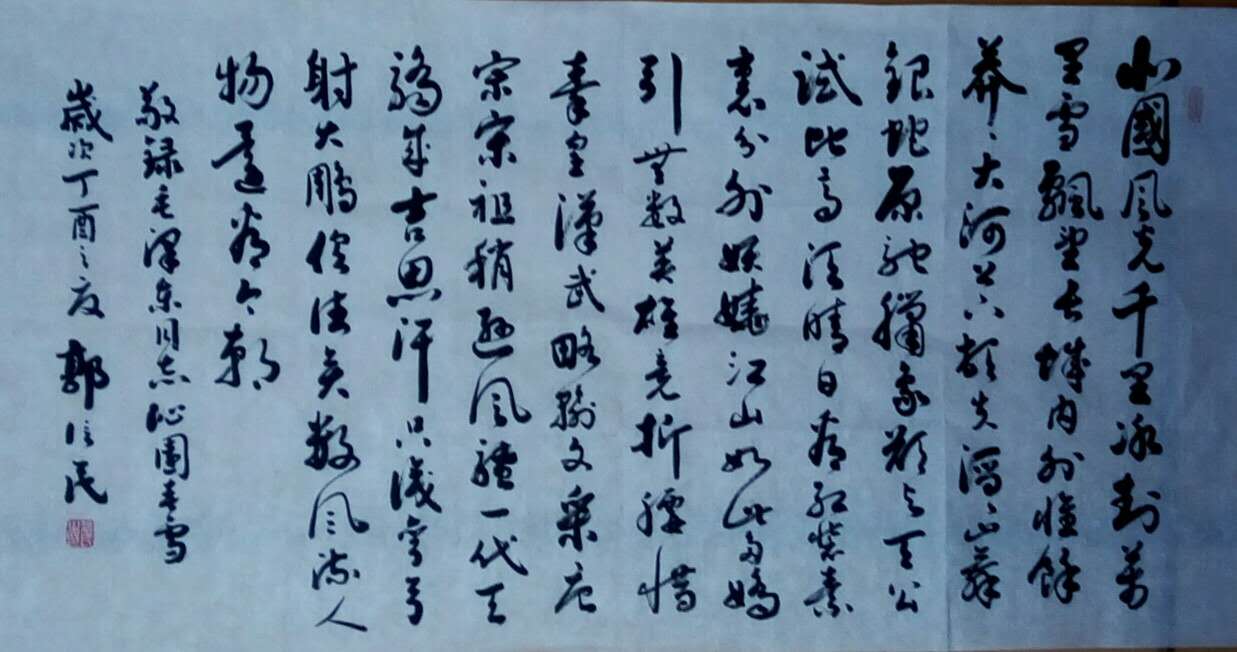 北國風光千里冰封萬
里雪飄望長城内外惟餘
莽〻大河上下頓失滔〻山舞
銀蛇原馳臘象欲与天公
試比高須晴日看紅裝素
裹分外妖嬈江山如此多嬌
引無數英雄竞折腰惜
秦皇漢武略輸文采唐
宗宋祖稍遜風騷一代天
驕成吉思汗只識彎弓
射大鵰俱往矣數風流人
物還看今朝
敬録毛澤東同志沁園春雪
歲次丁酉之夏 郭信民